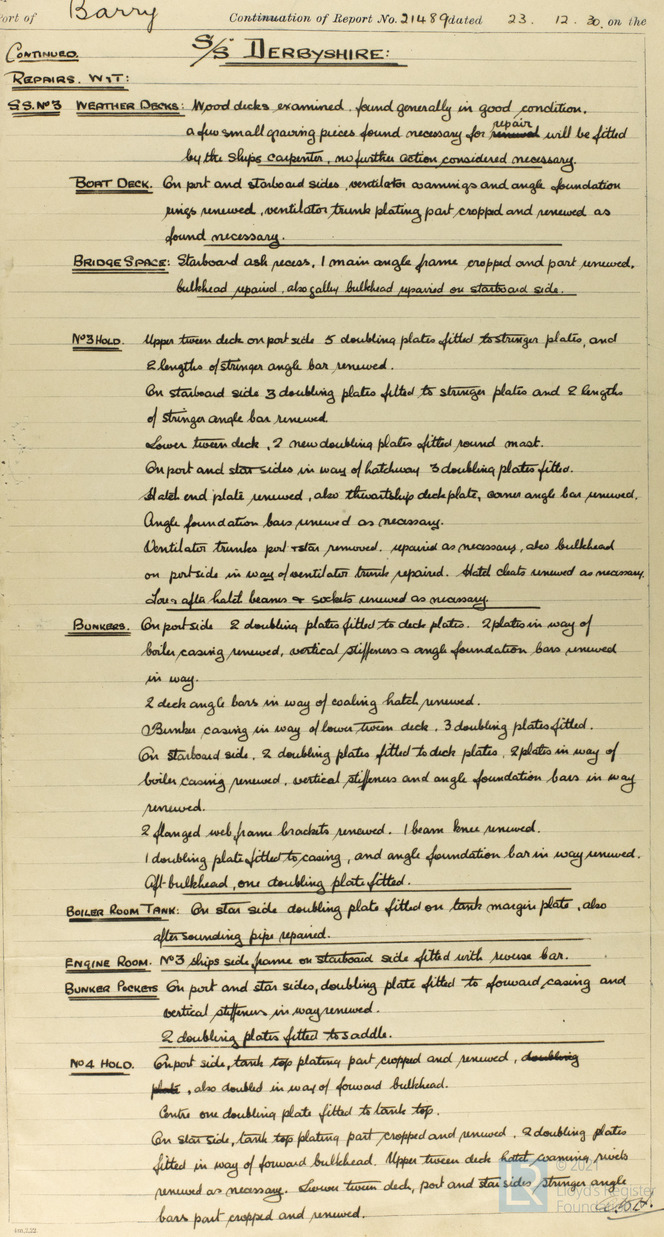 ort of Barry Continuation of Report No. 21489 dated 23. 12. 30. on the
S/S DERBYSHIRE:
CONTINUED.
REPAIRS. W&T:
S.S. No3 WEATHER DECKS: Wood decks examined. found generally in good condition.
a few small graving pieces found necessary for repair will be fitted
by the Ships carpenter, no further action considered necessary.
BOAT DECK. On port and starboard sides, ventilator coamings and angle foundation
rings renewed, ventilator trunk plating part cropped and renewed as
found necessary.
BRIDGE SPACE: Starboard ash recess, 1 main angle frame cropped and part renewed,
bulkhead repaired, also galley bulkhead repaired on starboard side.
No3 HOLD. Upper tween deck on port side 5 doubling plates fitted to stringer plates, and
2 lengths of stringer angle bar renewed.
On starboard side 3 doubling plates fitted to stringer plates and 2 lengths
of stringer angle bar renewed.
Lower tween deck, 2 new doubling plates fitted round mast.
On port and star sides in way of hatchway 3 doubling plates fitted.
Hatch end plate renewed, also thwartship deck plate, corner angle bar renewed.
Angle foundation bars renewed as necessary.
Ventilator trunks port & star removed. repaired as necessary, also bulkhead
on port side in way of ventilator trunk repaired. Hatch cleats renewed as necessary.
Fore & after hatch beams & sockets renewed as necessary.
BUNKERS. On port side 2 doubling plates fitted to deck plates. 2 plates in way of
boiler casing renewed, vertical stiffeners & angle foundation bars renewed
in way.
2 deck angle bars in way of coaling hatch renewed.
Bunker casing in way of lower tween deck. 3 doubling plates fitted.
On starboard side, 2 doubling plates fitted to deck plates, 2 plates in way of
boiler casing renewed, vertical stiffeners and angle foundation bars in way
renewed.
2 flanged web frame brackets renewed. 1 beam knee renewed.
1 doubling plate fitted to casing, and angle foundation bar in way renewed.
Aft bulkhead, one doubling plate fitted.
BOILER ROOM TANK: On star side doubling plate fitted on tank margin plate, also
after sounding pipe repaired.
ENGINE ROOM. No3 ships side frame on starboard side fitted with reverse bar.
BUNKER POCKETS On port and star sides, doubling plate fitted to forward casing and
vertical stiffeners in way renewed.
2 doubling plates fitted to saddle.
No4 HOLD. On port side, tank top plating part cropped and renewed, doubling
plate, also doubled in way of forward bulkhead.
Centre one doubling plate fitted to tank top.
On star side, tank top plating part cropped and renewed. 2 doubling plates
fitted in way of forward bulkhead. Upper tween deck hatch coaming rivets
renewed as necessary. Lower tween deck, port and star sides stringer angle
bars part cropped and renewed.
© 2021
Lloyd's Register
Foundation